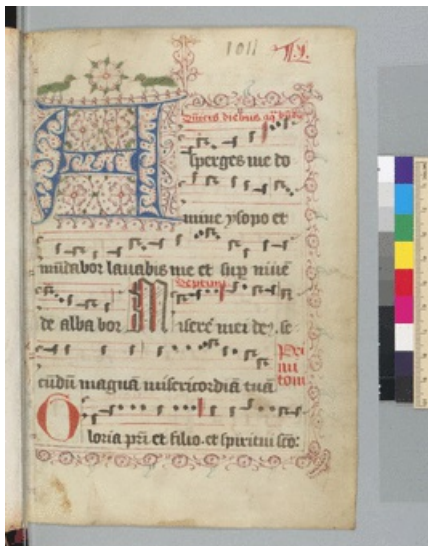 1011
Asperges me do
mine ysopo et
mūdabor lauabis me et sup niuē
de alba bor Miserē mei deꝰ. se
cūdū magnā misericordiā tuā
Gloria pr̄i et filio. et spiritui scō: